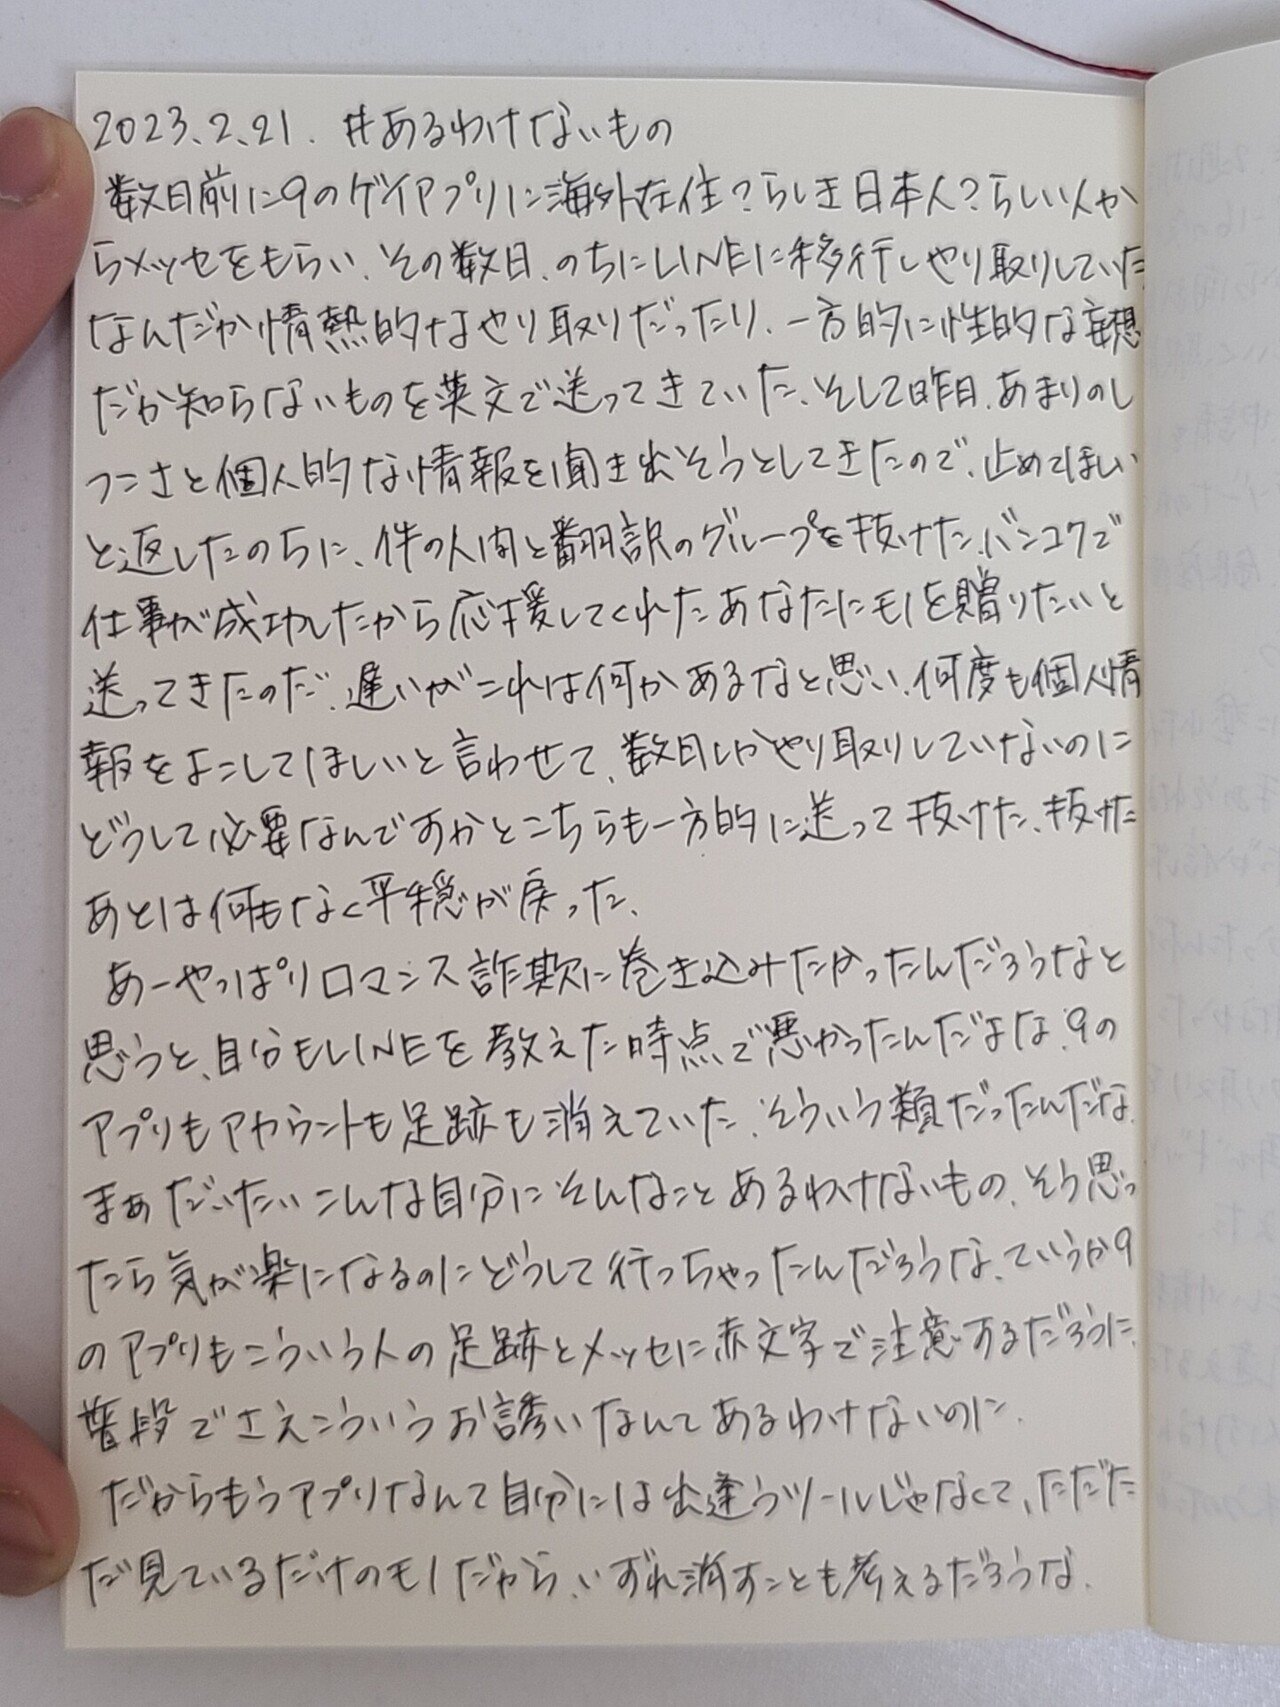 2023.2.21. #あるわけないもの
数日前に9のゲイアプリに海外在住?らしき日本人?らしい人か
らメッセをもらい、その数日、のちにLINEに移行しやり取りしていた
なんだか情熱的なやり取りだったり、一方的に性的な妄想
だか知らないものを英文で送ってきていた、そして昨日、あまりのし
つこさと個人的な情報を聞き出そうとしてきたので、止めてほしい
と返したのちに、件の人間と翻訳のグループを抜けた、バンコクで
仕事が成功したから応援してくれたあなたにモノを贈りたいと
送ってきたのだ、遅いがこれは何かあるなと思い、何度も個人情
報をよこしてほしいと言わせて、数日しかやり取りしていないのに
どうして必要なんですかとこちらも一方的に送って抜けた、抜けた
あとは何もなく平穏が戻った、
あーやっぱりロマンス詐欺に巻き込みたかったんだろうなと
思うと、自分もLINEを教えた時点で悪かったんだよな、9の
アプリもアカウントも足跡も消えていた、そういう類だったんだな、
まぁだいたいこんな自分にそんなことあるわけないもの、そう思っ
たら気が楽になるのにどうして行っちゃったんだろうな、ていうか9
のアプリもこういう人の足跡とメッセに赤文字で注意するだろうに、
普段でさえこういうお誘いなんてあるわけないのに、
だからもうアプリなんて自分には出逢うツールじゃなくて、ただた
だ見ているだけのモノだから、いずれ消すことも考えるだろうな、